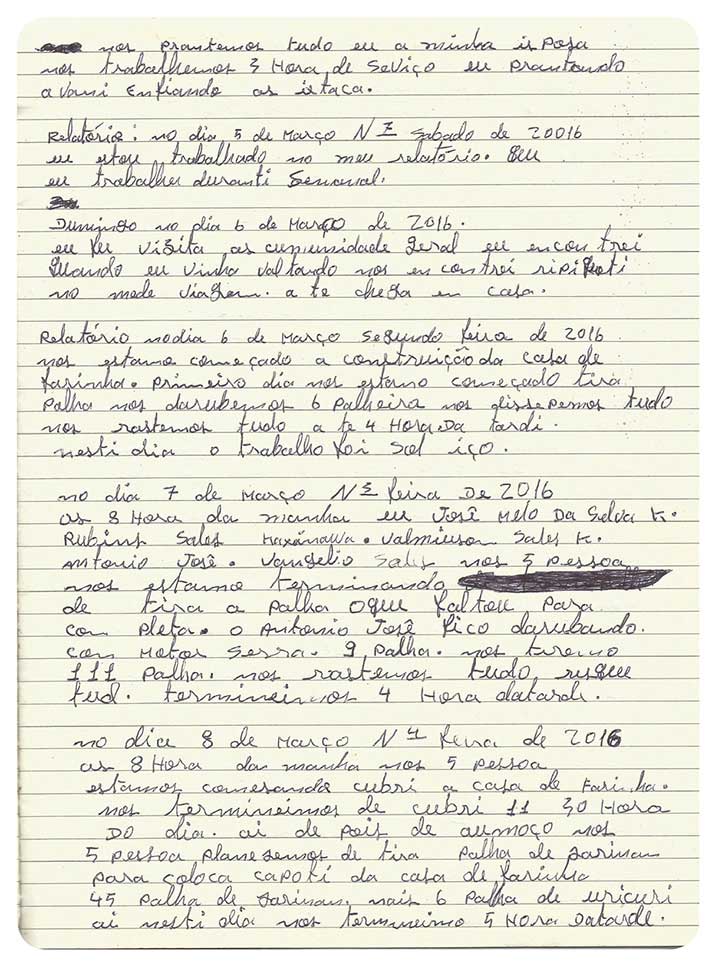 nos prantemos tudo eu a minha isposa
nos trabalhemos 3 Hora de Seviço eu prantando
a Vani Enfiando as istaca.
Relatório: no dia 5 de Março N Sabado de 20016
eu estou trabalhado no meu relatório.
eu trabalhei duranti Semanal.
Dumingo no dia 6 de Março de 2016.
eu fui visita as cumunidade geral eu encontrei
Quando eu vinha valtando nos encontrei
no mede viagem. a te chega en casa.
Relatório no dia 6 de Março Segundo feira de 2016
nos estamo começado a construição da casa de
farinha. primeiro dia nos estamo começado tira
Palha nos darubemos 6 Palheira nos tudo
nos rastemos tudo a te 4 Hora Da tardi.
nesti dia o trabalho foi Sol iço.
no dia 7 de Março N feira De 2016
as 8 Hora da manha eu José Melo Da Selva K.
Rubins Sales Kaxinawa. Valmiuson Sales K.
Antonio José. Vangelio Sales nos 5 pessoa
nos estamo terminando
de tira a palha oque faltou para
con pleta. o Antonio José fico darubando.
con Motor Serra. 9 Palha. nos tiremo
111 Palha. nos rastemos tudo
tud. termineimos 4 Hora datarde.
no dia 8 de Março N feira de 2016
as 8 Hora da manha nos 5 pessoa
estamos comesando cubri a casa de Farinha.
nos termineimos de cubri 11 30 Hora
Do dia. ai de pois de aumoço nos
5 pessoa planezemos de tira palha de jarinan
para coloca capoti da casa de farinha
45 palha de jarinan. mais 6 palha de uricuri
ai nesti dia nos termineimo 5 Hora Datarde.